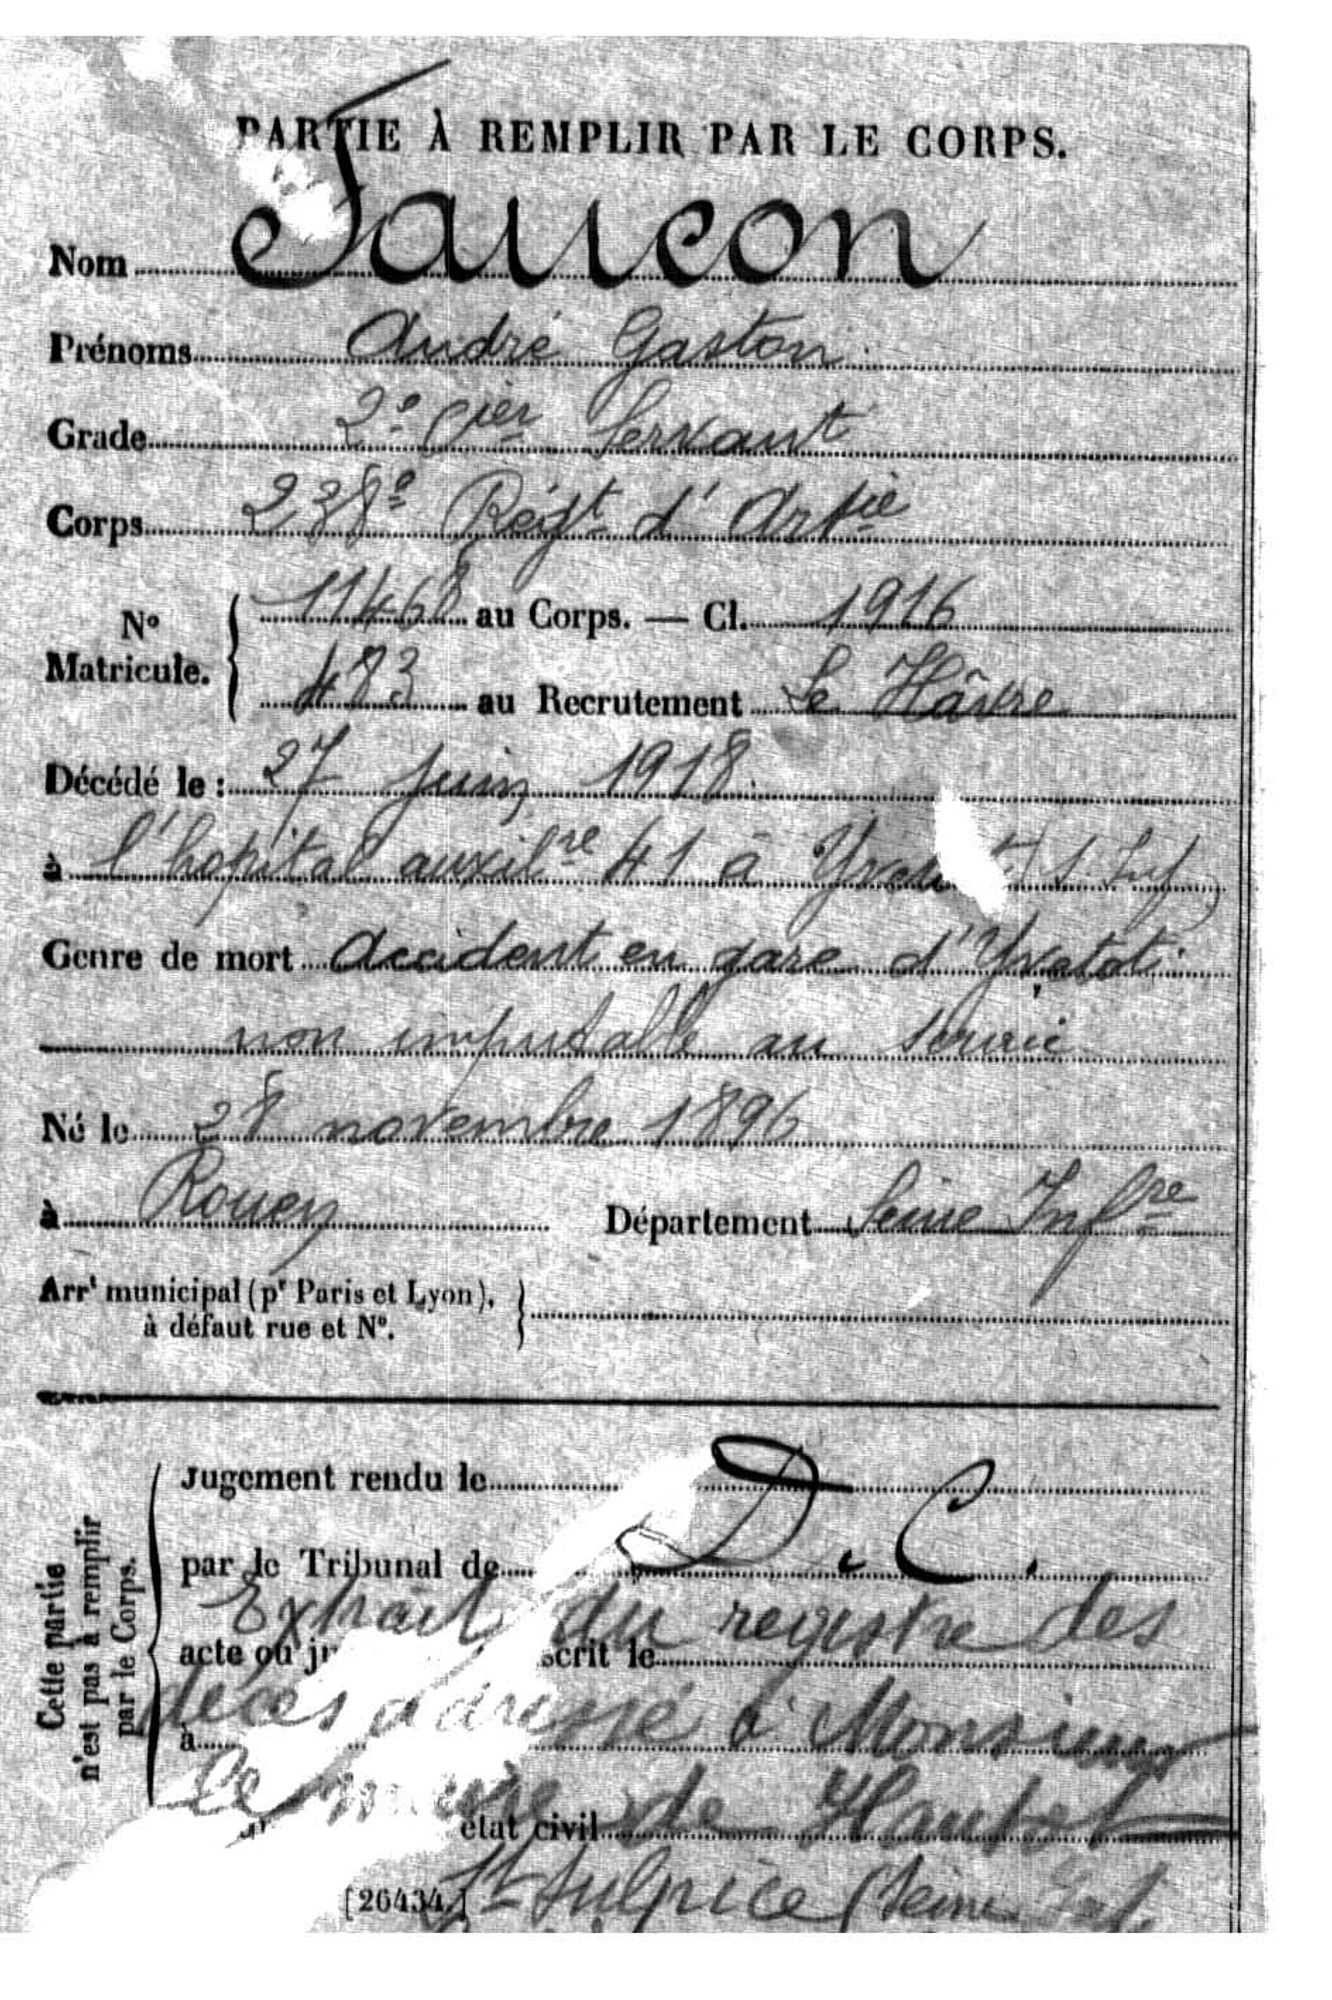 PARTIE À REMPLIR PAR LE CORPS.
Nom Faucon
Prénoms André Gaston
Grade 2e cier Servant
Corps 238e Régt d'Artie
No Matricule. 11468 au Corps. — Cl. 1916
483 au Recrutement Le Hâvre
Décédé le : 27 juin 1918.
à l'hopital auxilre 41 à Yvetot (S. Inf)
Genre de mort Accident en gare d'Yvetot.
non imputable au service
Né le 28 novembre 1896
à Rouen Département Seine Infre
Arrt municipal (pr Paris et Lyon),
à défaut rue et No.
Cette partie
n'est pas à remplir
par le Corps.
Jugement rendu le
D. C.
par le Tribunal de
Extrait du registre des
acte ou scrit le
décès adressé à Monsieur
à
le maire de Hautot
état civil
St Sulpice (Seine Inf.
[26434.]